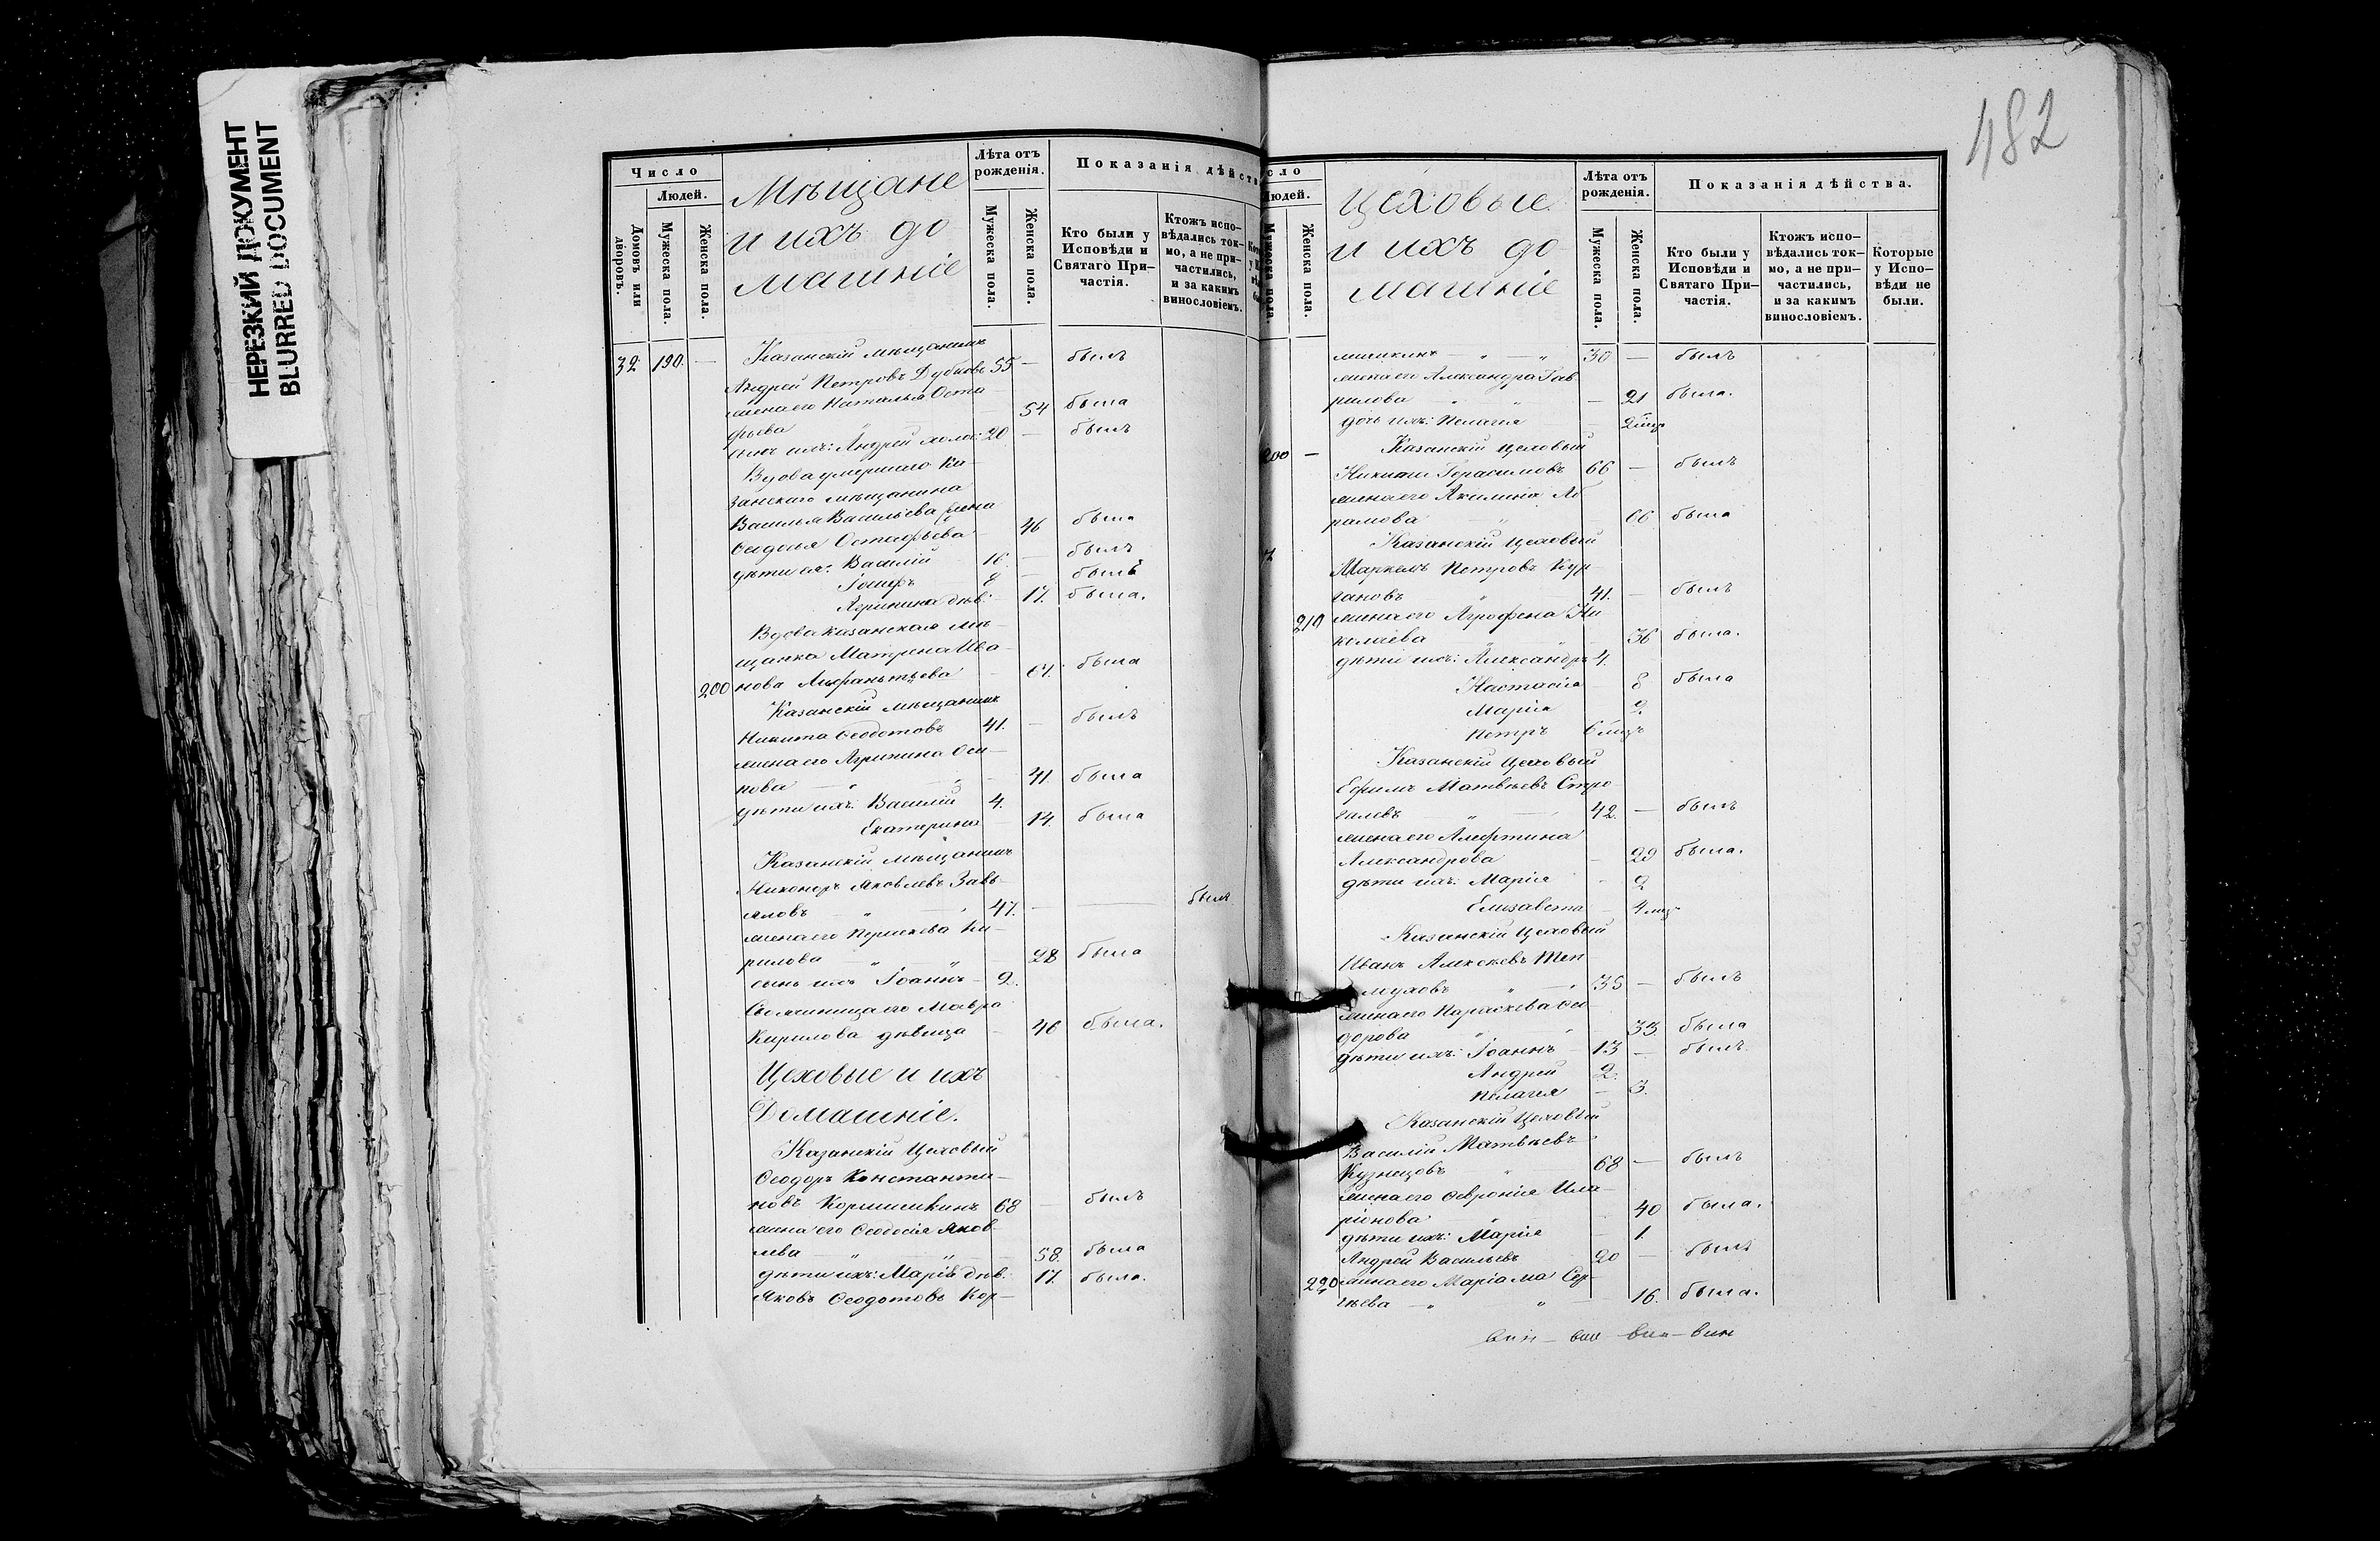 НЕРЕЗКИЙ ДОКУМЕНТ
BLURRED DOCUMENT
Число
Людей.
Домовъ или дворовъ.
Мужеска пола.
Женска пола.
Мѣщане
и ихъ до
машніе
Лѣта отъ рожденія.
Мужеска пола.
Женска пола.
Показанія дѣйств
Кто были у Исповѣди и Святаго Причастія.
Ктожъ исповѣдались токмо, а не причастились, и за какимъ винословіемъ.
32 190. — Казанскій мѣщанинъ
Андрей Петровъ Дубковъ 55 — былъ
жена его Наталья Оста
фьева — 54 была
сынъ ихъ: Андрей холос: 20 — былъ
Вдова умершаго Ка-
занскаго мѣщанина
Василья Васильева жена
Ѳедосья Остафьева — 46 была
дѣти ея: Василій 16 — былъ
Іосифъ 8 — былъ
Агрипина дѣв: 17. была.
Вдова казанская мѣ-
щанка Матрена Ива
200 нова — 64. была
Казанскій мѣщанинъ
Никита Ѳеодотовъ 41. — былъ
жена его Агрипина Оси-
пова — " — 41. была
дѣти ихъ: Василій 4.
Екатерина — 14. была
Казанскій мѣщанинъ
Никоноръ Яковлевъ Завь-
яловъ " 47. — былъ
жена его Ки-
рилова — " — " 28 была
сынъ ихъ Іоаннъ — 2.
Своячиница его Мавра
Кирилова дѣвица — 46 была.
Цеховые и ихъ
Домашніе.
Казанскій Цеховый
Ѳеодоръ Константи-
новъ Кормишкинъ 68 — былъ
жена его Ѳеодосія Яков
лева " — " — 58. была
дѣти ихъ: Марія дѣв: — 17. была.
Яковъ Ѳеодотовъ Кор-
182
сло
Людей.
Мужеска пола.
Женска пола.
Цеховые
и ихъ до
машніе
Лѣта отъ рожденія.
Мужеска пола.
Женска пола.
Показанія дѣйства.
Кто были у Исповѣди и Святаго Причастія.
Ктожъ исповѣдались токмо, а не причастились, и за какимъ винословіемъ.
Которые у Исповѣди не были.
мишкинъ — " — " 30 — былъ
жена его Александра Гав
рилова " — 21 была.
дочь ихъ: Пелагія —
200 — Казанскій Цеховый
Никита Герасимовъ 66 — былъ
жена его Акилина Аб
рамова " 66 была
Казанскій Цеховый
Маркелъ Петровъ Кур
гановъ " 41. — былъ
210 жена его Агрофена Ни
колаева " — 36 была.
дѣти ихъ: Александръ 4.
Настасія — 8 была
Марія 2.
Петръ 6 мѣс.
Казанскій Цеховый
Ефимъ Матвѣевъ Стро
галевъ — " — 42. — былъ
жена его Алефтина
Александрова — 29 была.
дѣти ихъ: Марія — 2
Елизавета — 4 мѣс.
Казанскій Цеховый
Иванъ Алексѣевъ Теп
лоуховъ " — 35 — былъ
жена его Параскева Ѳео
дорова " — 33. была
дѣти ихъ: Іоаннъ — 13 — былъ
Андрей 2.
Пелагея — 3.
Казанскій Цеховый
Василій Матвѣевъ
Кузнецовъ " 68 — былъ
жена его Ѳевронія Ила
ріонова " 40 была.
дѣти ихъ: Марія — 1.
Андрей Васильевъ 20 — былъ
220 жена его Маріама Сер-
гѣева — " " — 16. была.